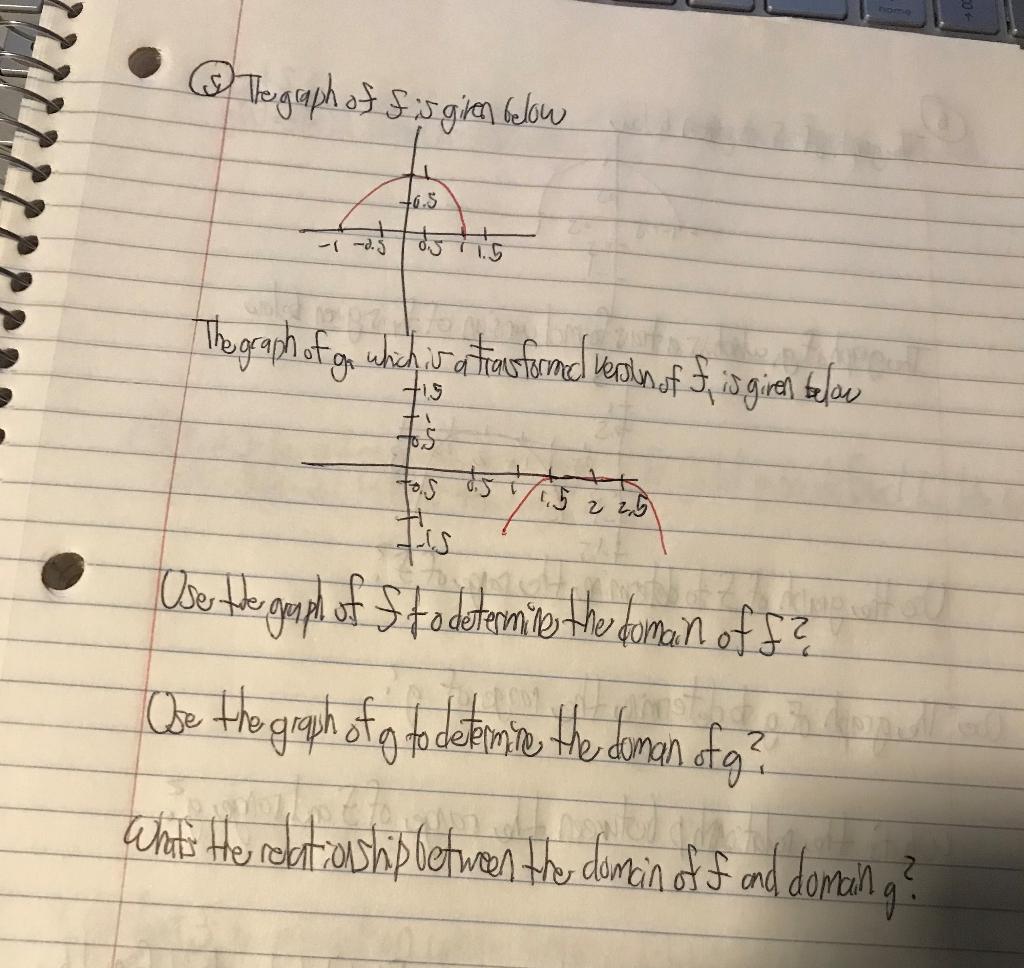 5 The graph of f is given below
1
0.5
-1 -0.5 0.5 1 1.5
The graph of g, which is a transformed version of f, is given below
1.5
1
0.5
-0.5 0.5 1 1.5 2 2.5
-1
-1.5
Use the graph of f to determine, the domain of f?
Use the graph of g to determine, the doman of g?
What's the relationship between the domain of f and domain g?